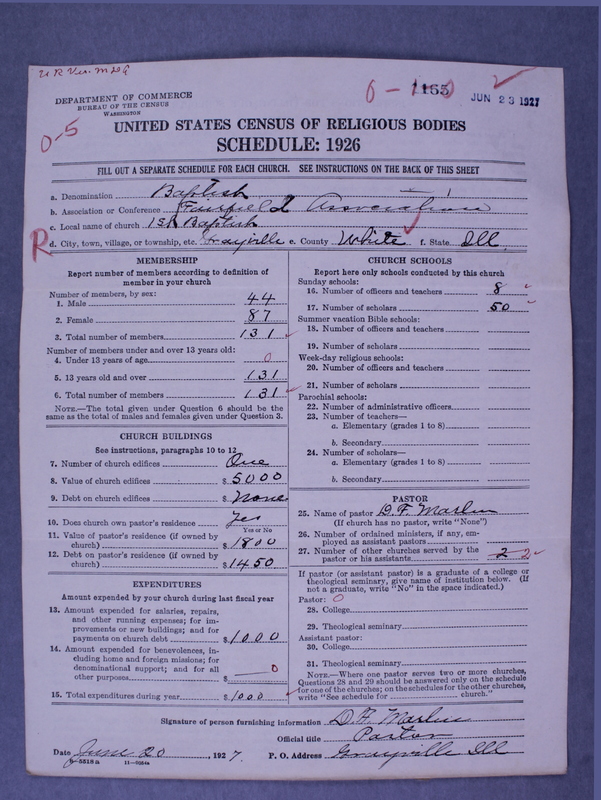 U.R. Ver. M.D.G
1165
JUN 23 1927
DEPARTMENT OF COMMERCE
BUREAU OF THE CENSUS
WASHINGTON
0-5
UNITED STATES CENSUS OF RELIGIOUS BODIES
SCHEDULE: 1926
FILL OUT A SEPARATE SCHEDULE FOR EACH CHURCH. SEE INSTRUCTIONS ON THE BACK OF THIS SHEET
a. Denomination Baptist
b. Association or Conference Fairfield Association
c. Local name of church 1st Baptist
R
d. City, town, village, or township, etc. Grayville e. County White f. State Ill.
MEMBERSHIP
Report number of members according to definition of
member in your church
Number of members, by sex:
1. Male 44
2. Female 87
3. Total number of members 131
Number of members under and over 13 years old:
4. Under 13 years of age 0
5. 13 years old and over 131
6. Total number of members 131
NOTE.—The total given under Question 6 should be the
same as the total of males and females given under Question 3.
CHURCH BUILDINGS
See instructions, paragraphs 10 to 12
7. Number of church edifices One
8. Value of church edifices $5000
9. Debt on church edifices $None
10. Does church own pastor's residence Yes
Yes or No
11. Value of pastor's residence (if owned by
church) $1800
12. Debt on pastor's residence (if owned by
church) $1450
EXPENDITURES
Amount expended by your church during last fiscal year
13. Amount expended for salaries, repairs,
and other running expenses; for im-
provements or new buildings; and for
payments on church debt $1000
14. Amount expended for benevolences, in-
cluding home and foreign missions; for
denominational support; and for all
other purposes $ 0
15. Total expenditures during year $1000
CHURCH SCHOOLS
Report here only schools conducted by this church
Sunday schools:
16. Number of officers and teachers 8
17. Number of scholars 50
Summer vacation Bible schools:
18. Number of officers and teachers
19. Number of scholars
Week-day religious schools:
20. Number of officers and teachers
21. Number of scholars
Parochial schools:
22. Number of administrative officers
23. Number of teachers—
a. Elementary (grades 1 to 8)
b. Secondary
24. Number of scholars—
a. Elementary (grades 1 to 8)
b. Secondary
PASTOR
25. Name of pastor D. F. Marlin
(If church has no pastor, write "None")
26. Number of ordained ministers, if any, em-
ployed as assistant pastors
27. Number of other churches served by the
pastor or his assistants 2 2
If pastor (or assistant pastor) is a graduate of a college or
theological seminary, give name of institution below. (If
not a graduate, write "No" in the space indicated.)
Pastor: 0
28. College
29. Theological seminary
Assistant pastor:
30. College
31. Theological seminary
NOTE.—Where one pastor serves two or more churches,
Questions 28 and 29 should be answered only on the schedule
for one of the churches; on the schedules for the other churches,
write "See schedule for church."
Signature of person furnishing information D. F. Marlin
Official title Pastor
Date June 20, 1927. P. O. Address Grayville Ill
8-5518a 11-9054a